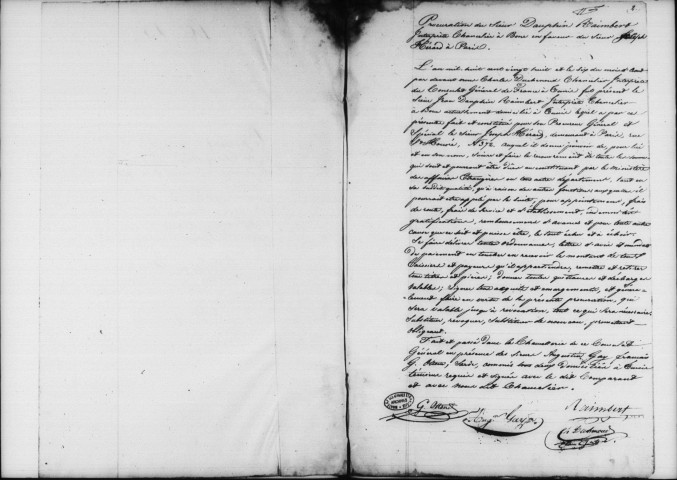 2
Procuration du Sieur Dauphin Raimbert
Interprète Chancelier à Bone en faveur du Sieur Joseph
Hérard à Paris.
L'an mil huit cent vingt huit et le dix du mois d'août
par devant nous Charles Duchenoud Chancelier Interprète
du Consulat Général de France à Tunis fut présent le
Sieur Jean Dauphin Raimbert Interprète Chancelier
à Bone actuellement domicilié à Tunis lequel a par ces
présentes fait et constitué pour son Procureur Général et
Spécial le Sieur Joseph Hérard, demeurant à Paris, rue
St Honoré, No 372 auquel il donne pouvoir de, pour lui
et en son nom, suivre et faire le recouvrement de toutes les sommes
qui sont et pourront être dues au constituant par le ministère
des affaires Etrangères ou tout autre département, tant en
sa dite qualité, qu'à raison de autres fonctions auxquelles il
pourrait être appelé par la suite, pour appointement, frais
de route, frais de service et d'établissement, indemnités
gratifications, remboursement d'avances et pour toute autre
cause que ce soit et puisse être, le tout échu et à échoir.
Se faire délivrer toutes ordonnances, lettres d'avis et mandats
de paiement en toucher en recevoir le montant de tous
Caissiers et payeurs qu'il appartiendra, remettre et retirer
tous titres et pièces; donner toutes quittances et décharges
valables; signer tous acquits et émargements, et généra-
lement faire en vertu de la présente procuration, qui
sera valable jusqu'à révocation, tout ce qui sera nécessaire
substituer, révoquer, substituer de nouveau, promettant
obligeant
Fait et passé dans la Chancellerie de ce Consulat
Général en présence des Sieurs Augustin Gay français
G. Sarde, connus tous deux domiciliés à Tunis
témoins requis et signés avec le dit Comparant
et avec nous dit Chancelier.
G.
Aug. Gay
Raimbert
C. Duchenoud